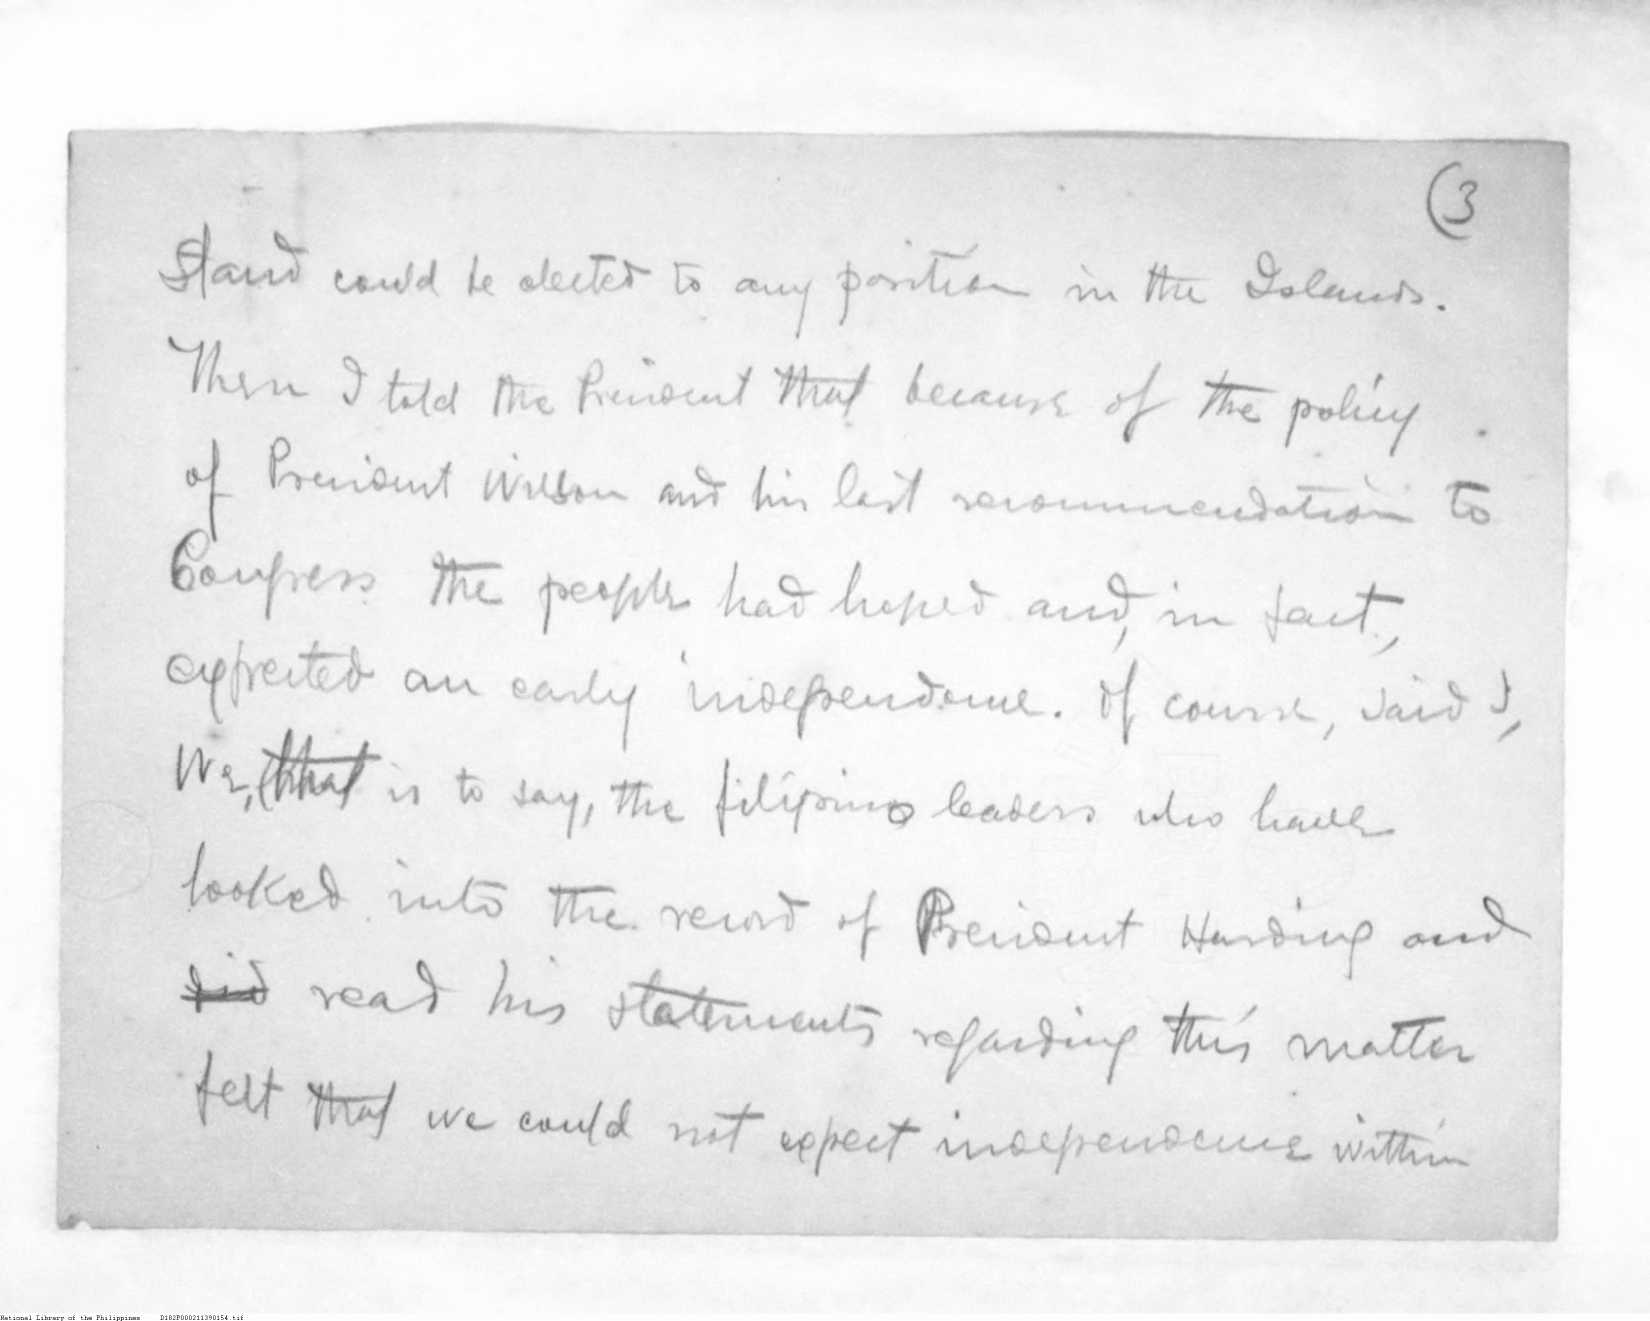 (3
stand could be elected to any position in the Islands.
Then I told the President that because of the policy
of President Wilson and his last recommendation to
Congress the people had hoped and, in fact,
expected an early independence. Of course, said I,
We, (that is to say, the filipino leaders who have
looked into the record of President Harding and
did read his statements regarding this matter
felt that we could not expect independence within
National Library of the Philippines D182P000211390154.tif